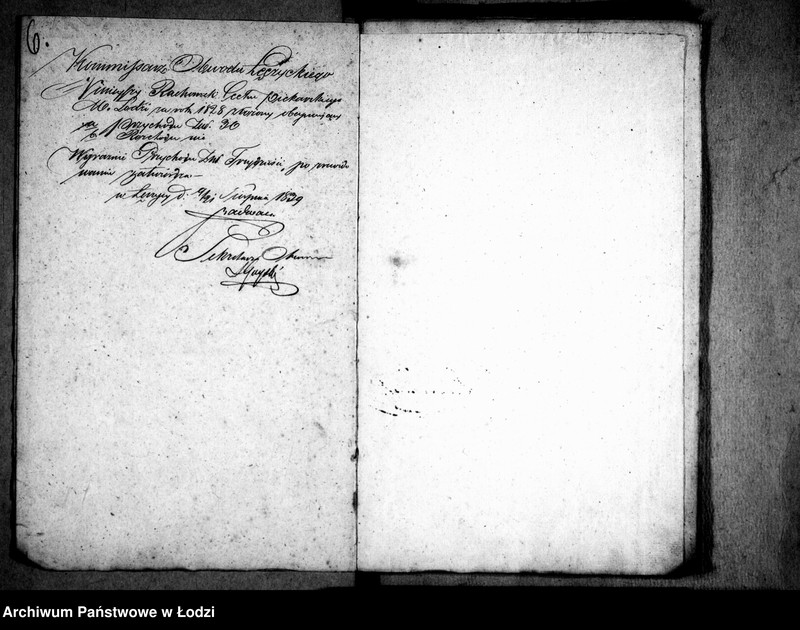 6.
Kommissarz Obwodu Łęczyckiego
Ninieyszy Rachunek Cechu Piekarskiego
M. Łodzi za rok 1828 złożony obeymuiący
w Przychodu Złt 30
Rozchodu nic
Wyraznie Przychodu Złt Trzydzieści, po
zatwierdza—
w Łęczycy d. Sierpnia 1829
Sekretarz
Archiwum Państwowe w Łodzi